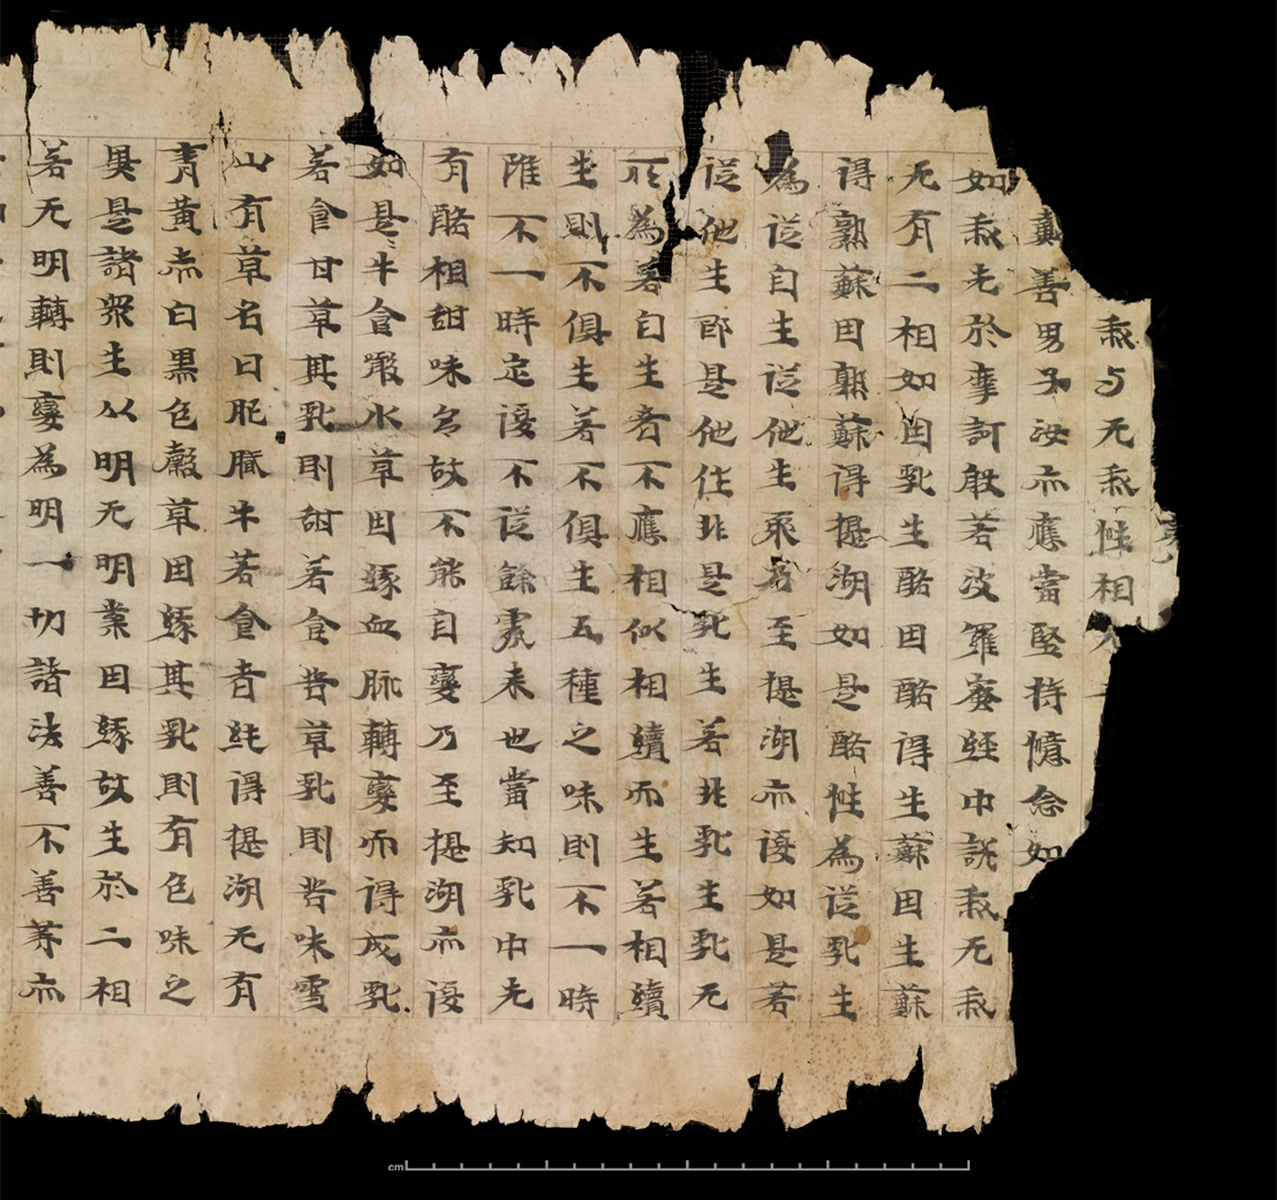 我与无我性相
真善男子汝亦應當堅持憶念如
如我先於摩訶般若波羅蜜經中說我无我
无有二相如因乳生酪因酪得生蘇因生蘇
得熟蘇因熟蘇得提湖如是酪性為從乳生
為從自生從他生耶乃至提湖亦復如是若
從他生即是他作非是乳生若非乳生乳无
所為若自生者不應相似相續而生若相續
生則不俱生若不俱生五種之味則不一時
雖不一時定復不從餘處来也當知乳中先
有酪相甜味多故不能自變乃至提湖亦復
如是牛食噉水草因緣血脉轉變而得成乳
若食甘草其乳則甜若食苦草乳則苦味雪
山有草名曰肥膩牛若食者純得提湖无有
青黃赤白黑色穀草因緣其乳則有色味之
異是諸眾生以明无明業因緣故生於二相
若无明轉則變為明一切諸法善不善等亦